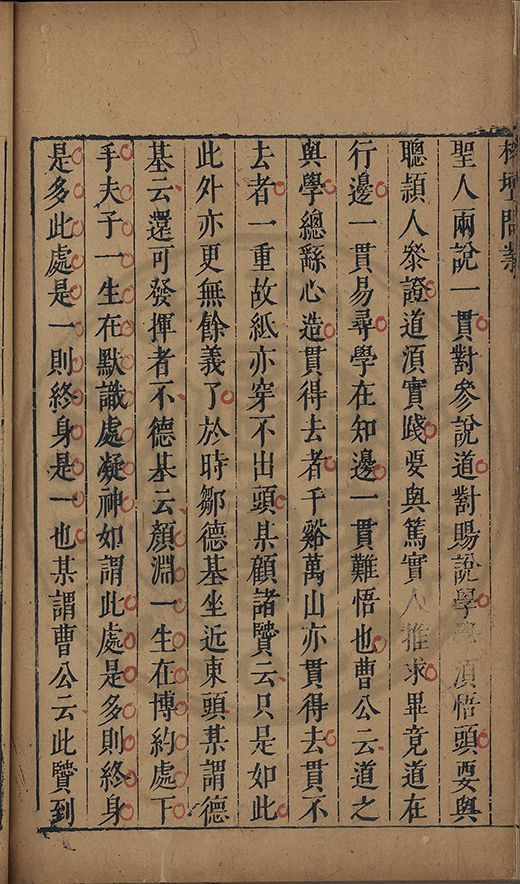 榕壇問業
聖人兩說一貫對參說道對賜說學學須悟頭要與
聰頴人叅證道湏實踐要與篤實人推求畢竟道在
行邊一貫易尋學在知邊一貫難悟也曹公云道之
與學總繇心造貫得去者千谿萬山亦貫得去貫不
去者一重故紙亦穿不出頭某顧諸贒云只是如此
此外亦更無餘義了於時鄒德基坐近東頭某謂德
基云還可發揮者不德基云顏淵一生在博約處下
手夫子一生在默識處凝神如謂此處是多則終身
是多此處是一則終身是一也某謂曹公云此贒到